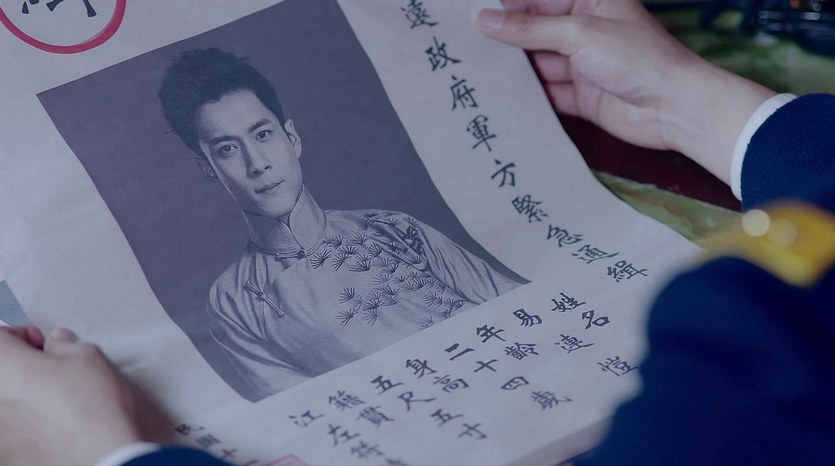 遠政府軍方緊急通緝
姓名
易連愷
年齡
二十四歲
身高
五尺五寸
籍貫
江左符
民國十